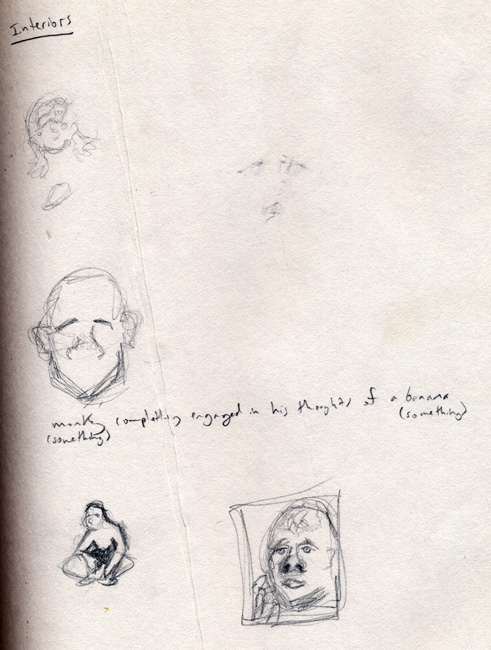 Interiors
monkey completely engaged in his thoughts of a banana
(something)
(something)